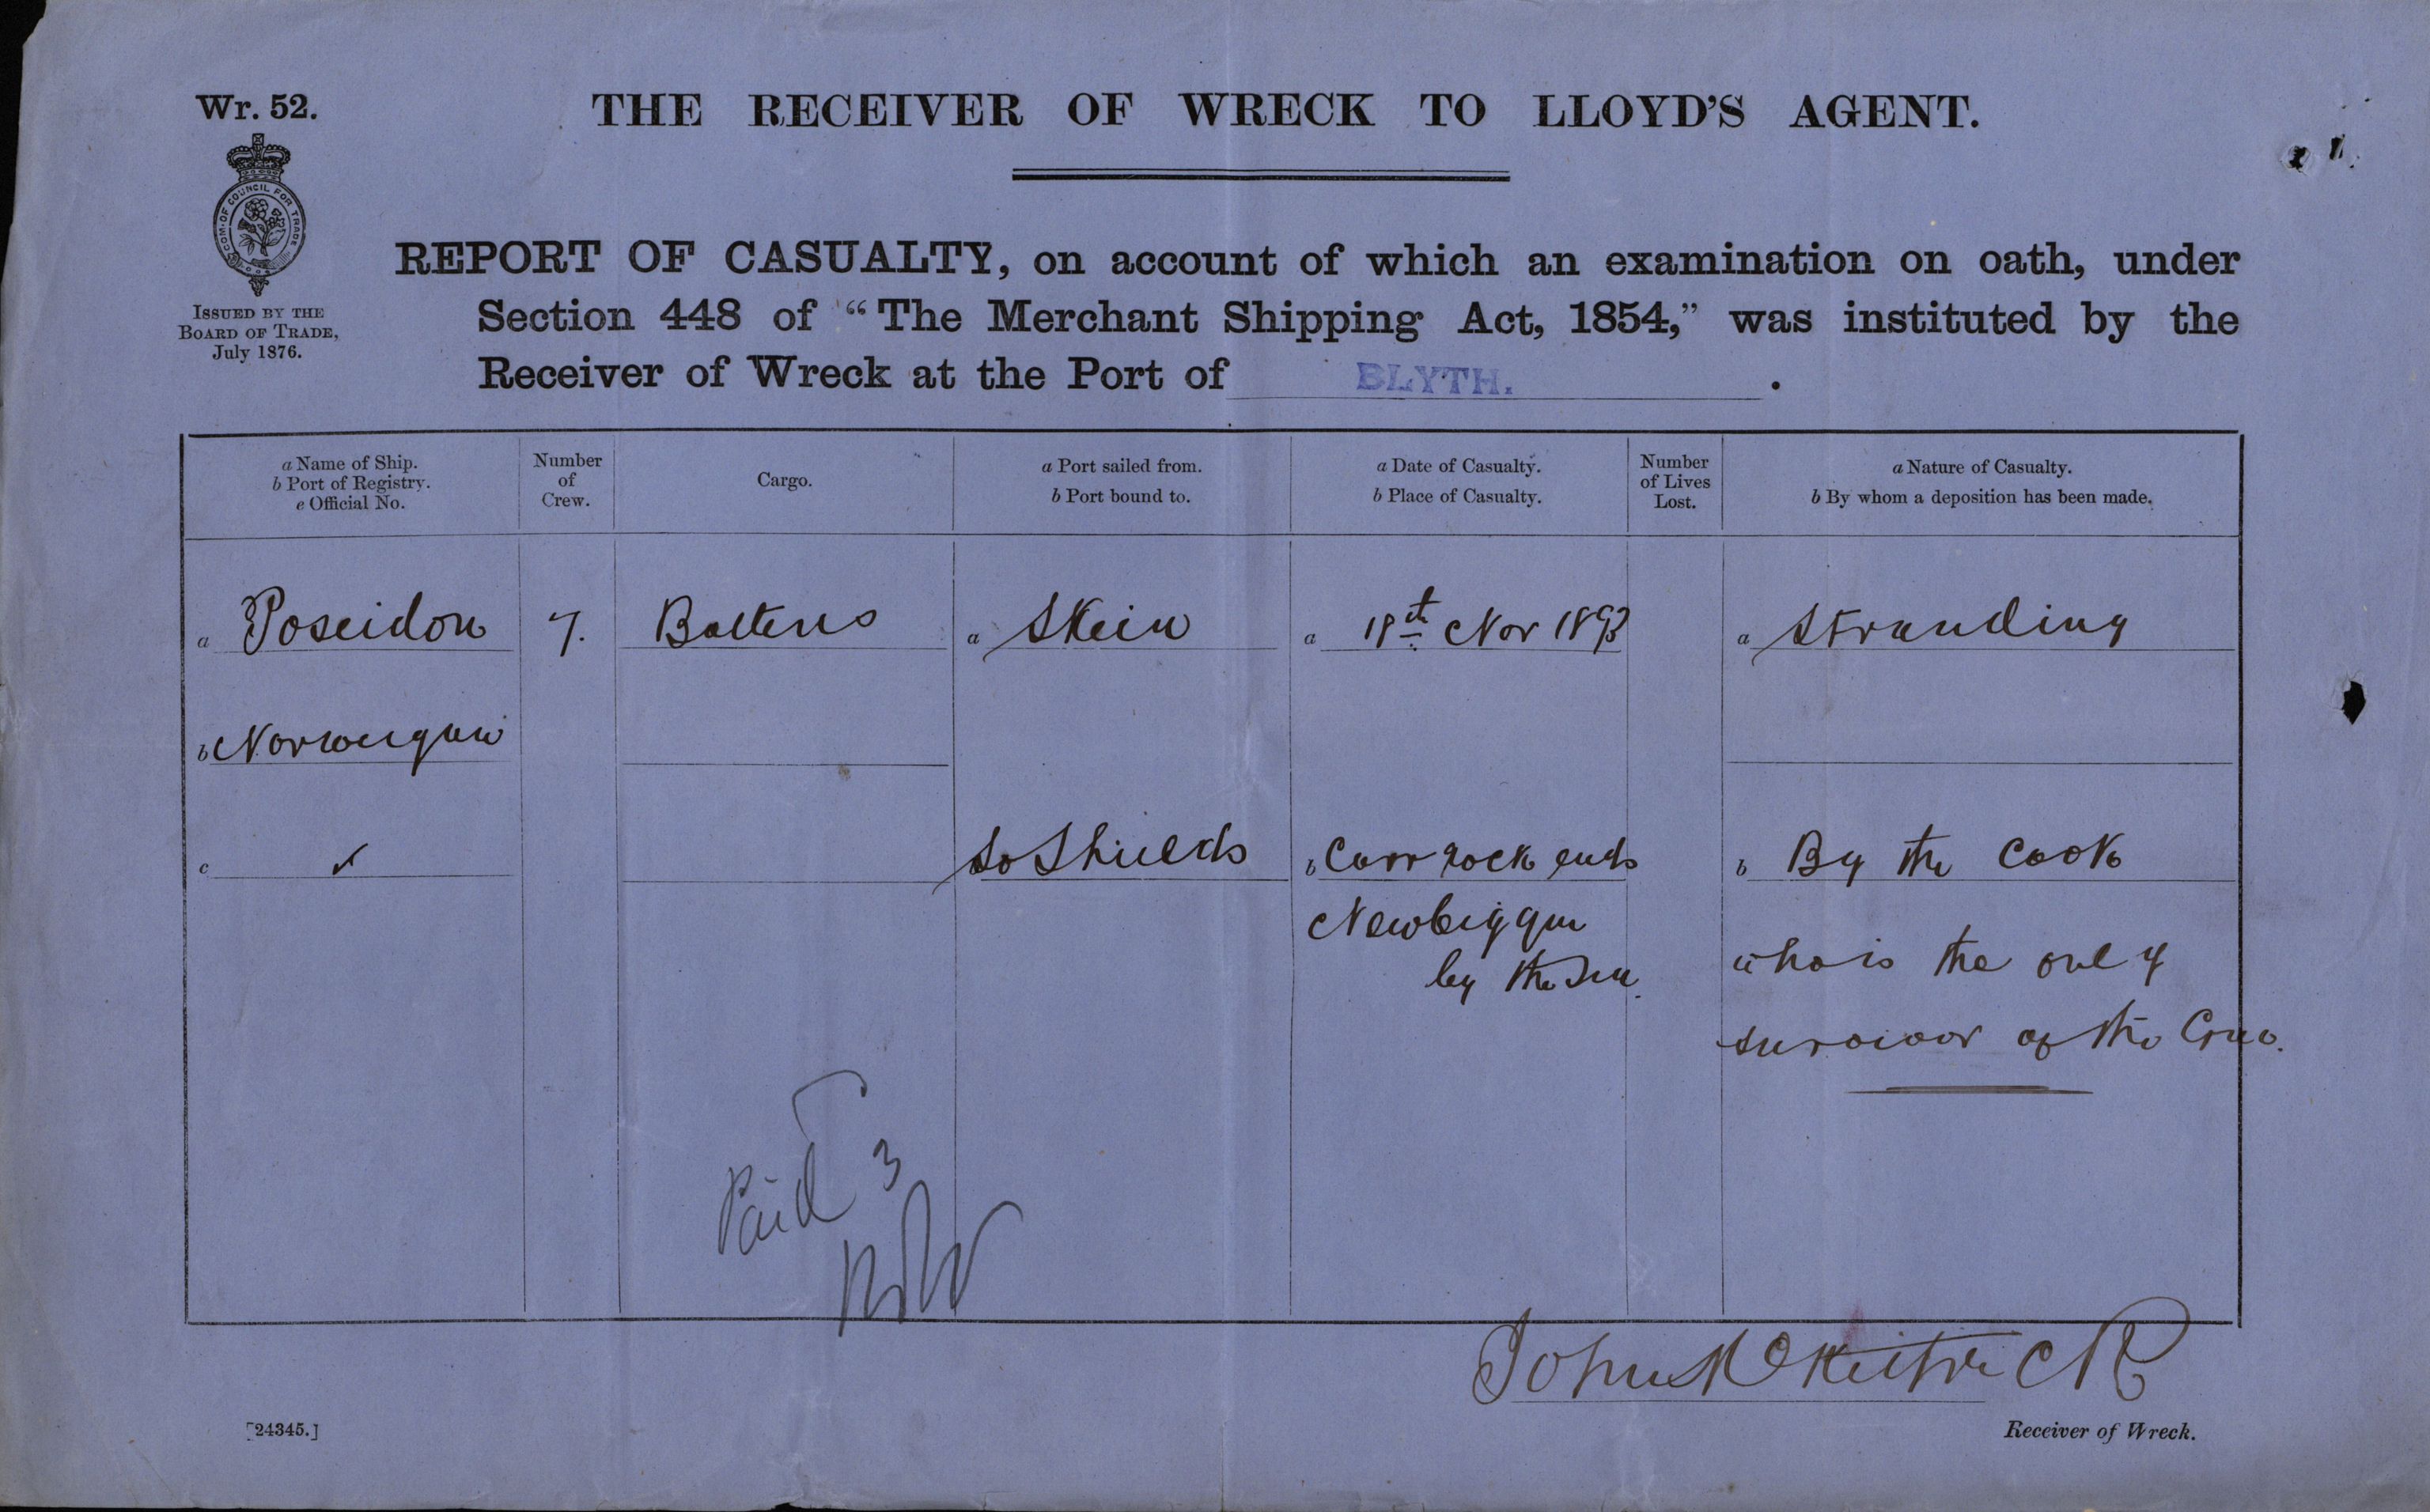 Wr. 52.
THE RECEIVER OF WRECK TO LLOYD'S AGENT.
COM. OF COUNCIL FOR TRADE
ISSUED BY THE
BOARD OF TRADE,
July 1876.
REPORT OF CASUALTY, on account of which an examination on oath, under
Section 448 of "The Merchant Shipping Act, 1854," was instituted by the
Receiver of Wreck at the Port of BLYTH.
a Name of Ship.
b Port of Registry.
e Official No.
Number
of
Crew.
Cargo.
a Port sailed from.
b Port bound to.
a Date of Casualty.
b Place of Casualty.
Number
of Lives
Lost.
a Nature of Casualty.
b By whom a deposition has been made.
a Poseidon
7.
Battens
a Skein
a 18th Nov 1893
a Stranding
b Norweigan
c
So Shields
b Carr rock ends
Newbiggin
by the Sea.
b By the Cook
who is the only
survivor of the Crew.
Paid 3
John McKitrick
Receiver of Wreck.
[24345.]